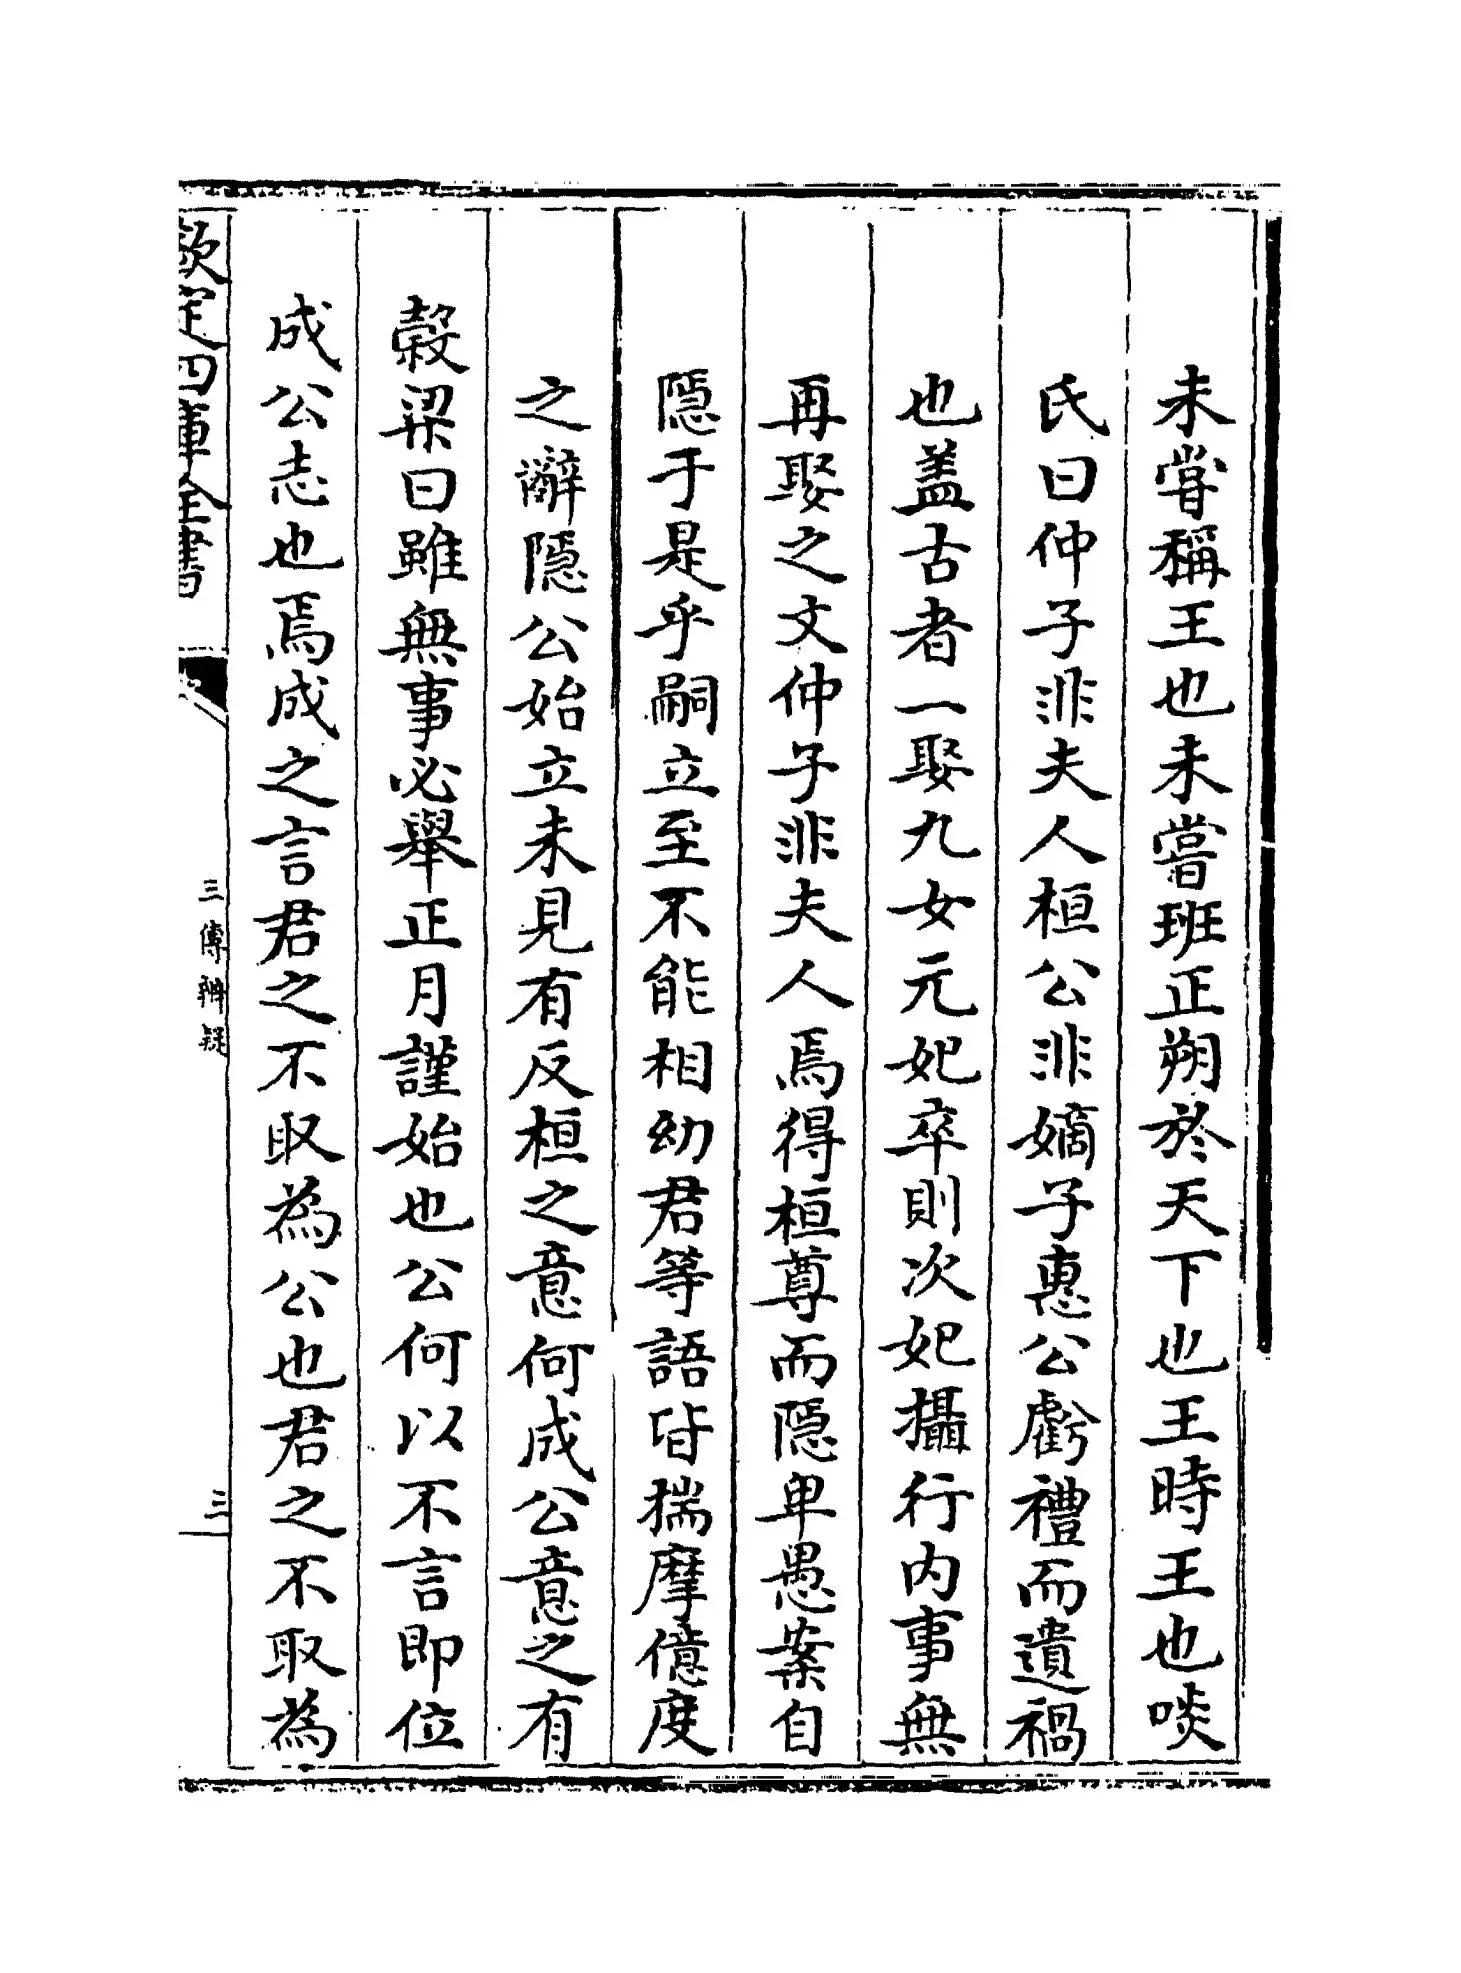 未甞稱王也未嘗班正朔於天下也王時王也啖
氏曰仲子非夫人桓公非嫡子惠公虧禮而遺禍
也盖古者一娶九女元妃卒則次妃攝行内事無
再娶之文仲子非夫人焉得桓尊而隠卑愚案自
隠于是乎嗣立至不能相幼君等語皆揣摩億度
之辭隠公始立未見有反桓之意何成公意之有
榖梁曰雖無事必舉正月謹始也公何以不言即位
成公志也焉成之言君之不取為公也君之不取為
欽定四庫全書
三傳辨疑
三